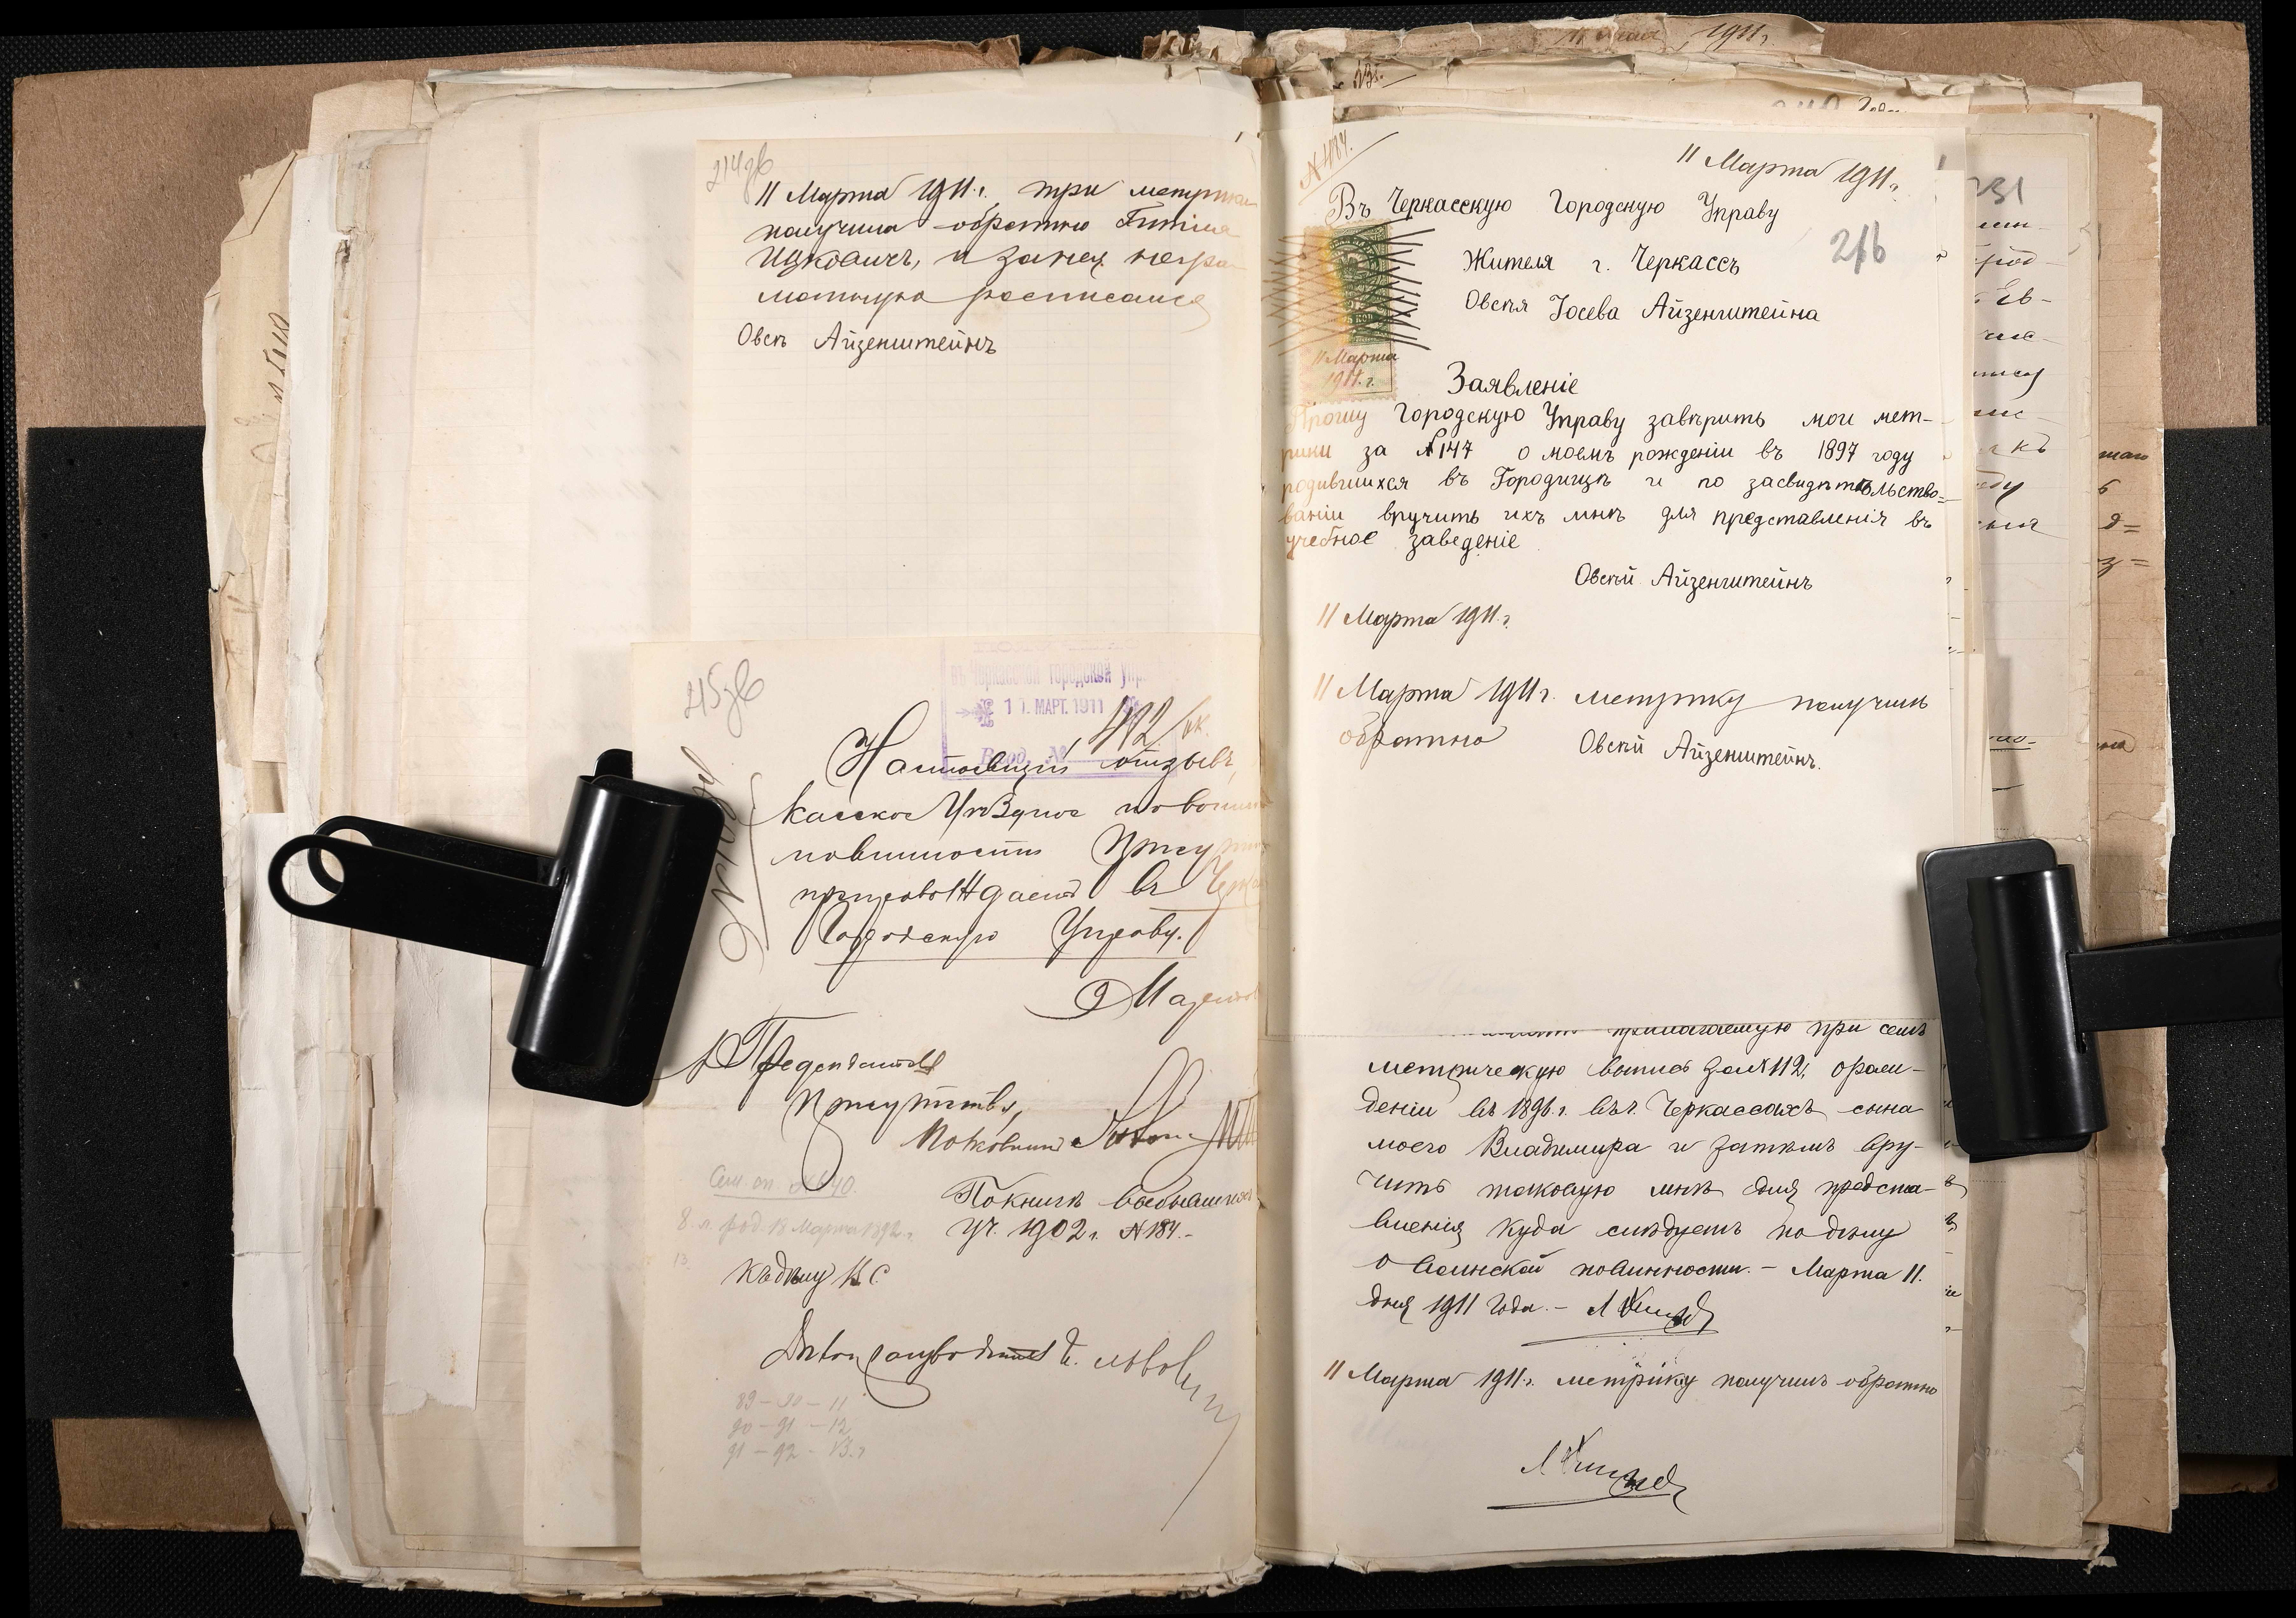 214об
11 Марта 1911 г. три метрики
получила обратно
Ицкович, и за нея негра
мотную росписался
Овсъ Айзенштейнъ
215об
въ Черкасской городской упр
10. МАРТ. 1911
Вход. №
412/вк.
Настоящий отзывъ,
касское Уѣздное по воин
повинности Прису
препровождаетъ въ Черка
Городскую Управу.
Присутствія,
Полковникъ
Сем. сп. № 640.
8. л. род. 18 Марта 1892 г.
13.
По книгѣ
уч. 1902 г. № 184.-
Къ дѣлу В. С.
89 - 90 - 11
90 - 91 - 12
91 - 92 - 13 г
1911 г.
№ 484.
11 Марта 1911 г.
Въ Черкасскую Городскую Управу
216
Жителя г. Черкассъ
Овсѣя Іосева Айзенштейна
5 КОП
11 Марта
1911. г.
Заявленіе
Прошу Городскую Управу завѣрить мои мет-
рики за №147 о моемъ рожденіи въ 1897 году
родившихся въ Городищѣ и по засвидѣтельство=
ваніи вручить ихъ мнѣ для представленія въ
учебное заведеніе
Овсѣй Айзенштейнъ
11 Марта 1911 г.
11 Марта 1911 г. метрику получилъ
обратно Овсѣй Айзенштейнъ.
прилагаемую при семъ
метрическую выпись за №112, о рож-
деніи въ 1896 г. въ г. Черкассахъ сына
моего Владимира и затѣмъ вру-
чить таковую мнѣ для предста-
вленія куда слѣдуетъ по дѣлу
о воинской повинности. - Марта 11.
дня 1911 года. -
11 Марта 1911 г. метрику получилъ обратно
231